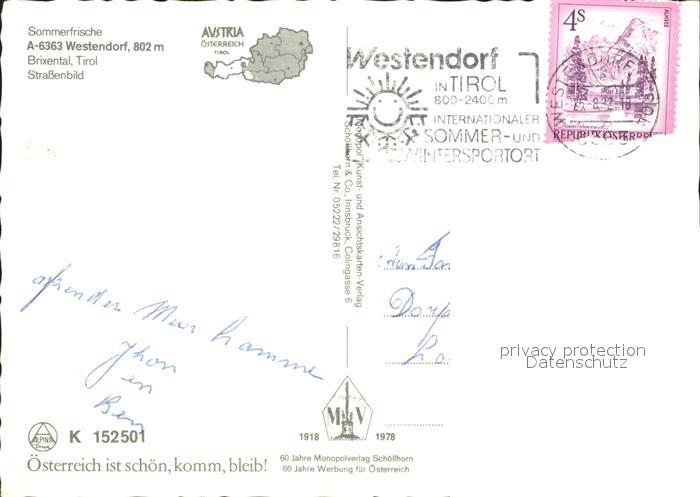 Sommerfrische
A-6363 Westendorf, 802 m
Brixental, Tirol
Straßenbild
AVSTRIA
ÖSTERREICH
TIROL
Westendorf
IN TIROL
800-2400 m
INTERNATIONALER
SOMMER- UND
WINTERSPORTORT
4S
ALMSEE
REPUBLIK ÖSTERREICH
"Monopol" Kunst- und Ansichtskarten-Verlag
Schöllhorn & Co, Innsbruck, Colingasse 6
Tel. Nr. 05222/29816
Dorp
privacy protection
Datenschutz
Jhon
en
Ben
ALPINA
Druck
K 152501
M V
1918 1978
Österreich ist schön, komm, bleib!
60 Jahre Monopolverlag Schöllhorn
60 Jahre Werbung für Österreich